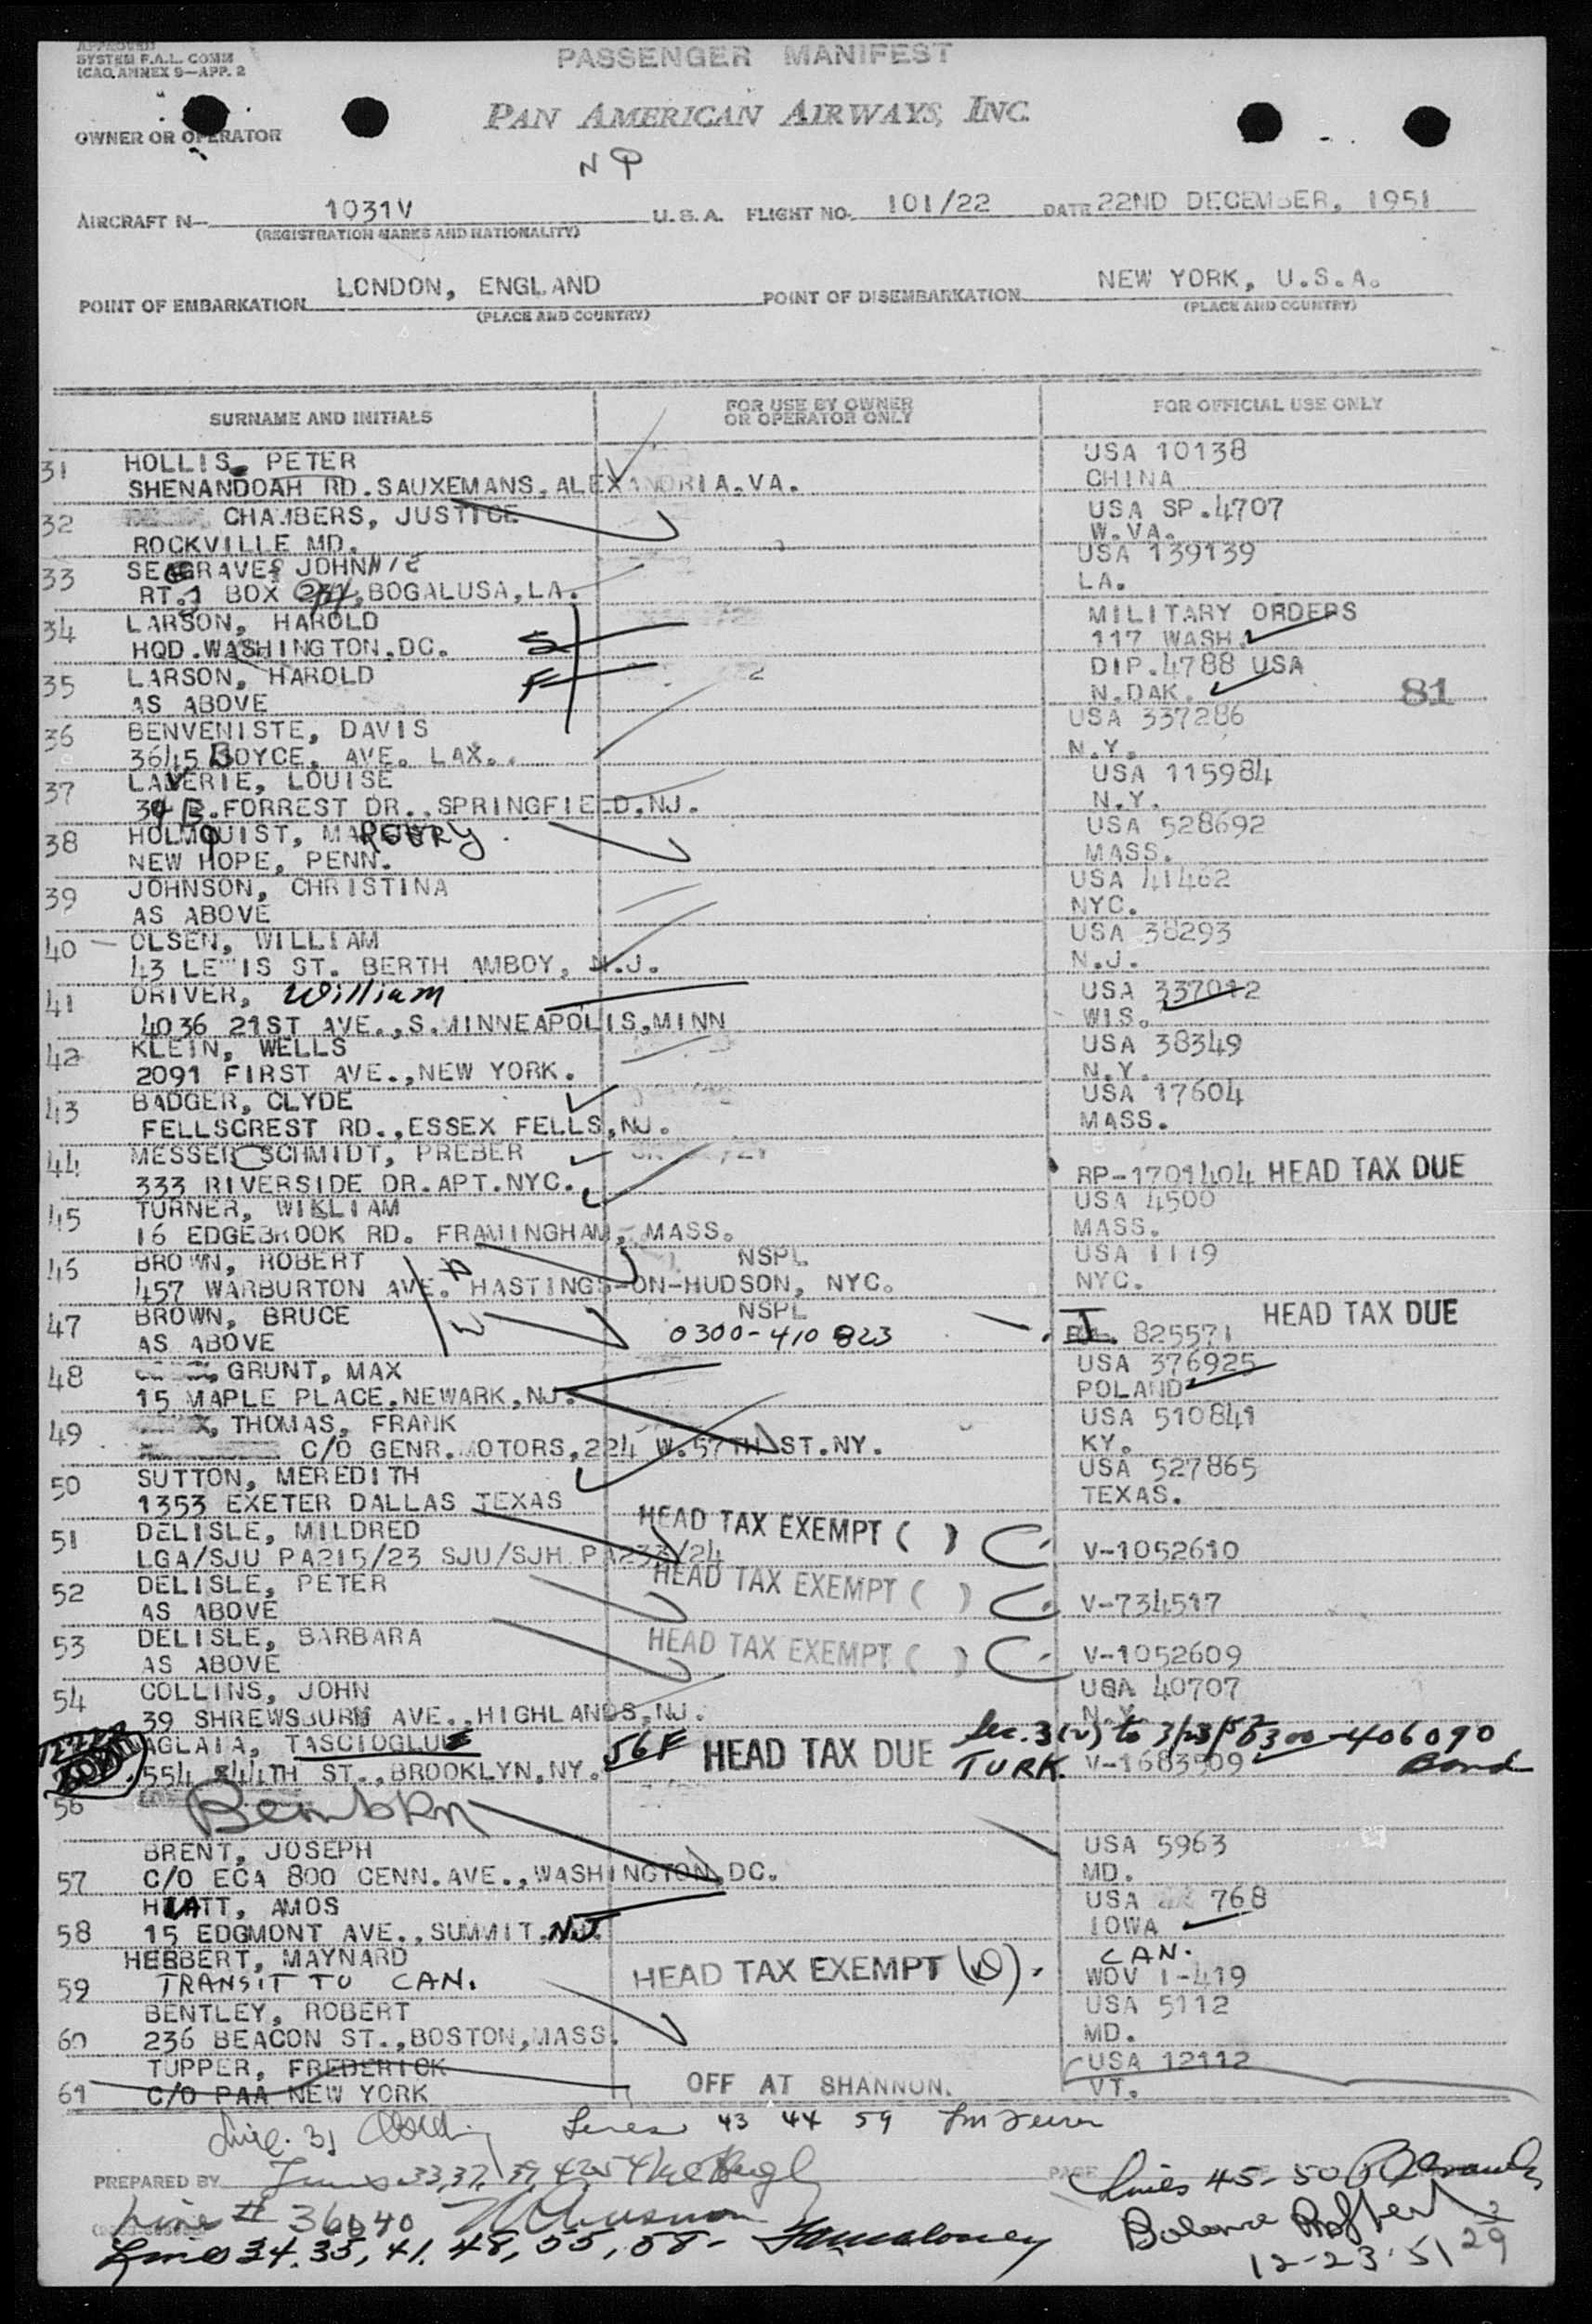 APPROVED
SYSTEM F.A.L. COMM
ICAO ANNEX 9—APP. 2
PASSENGER MANIFEST
PAN AMERICAN AIRWAYS, INC.
OWNER OR OPERATOR
AIRCRAFT N— 1031V U.S.A. FLIGHT NO. 101/22 DATE 22ND DECEMBER, 1951
(REGISTRATION MARKS AND NATIONALITY)
POINT OF EMBARKATION LONDON, ENGLAND POINT OF DISEMBARKATION NEW YORK, U.S.A.
(PLACE AND COUNTRY) (PLACE AND COUNTRY)
SURNAME AND INITIALS FOR USE BY OWNER OR OPERATOR ONLY FOR OFFICIAL USE ONLY
31 HOLLIS, PETER USA 10138
SHENANDOAH RD.SAUXEMANS,ALEXANDRIA.VA. CHINA
32 CHAMBERS, JUSTICE USA SP.4707
ROCKVILLE MD. W.VA.
33 SEAGRAVES JOHNNIE USA 139139
RT.1 BOX BOGALUSA,LA. LA.
34 LARSON, HAROLD MILITARY ORDERS
HQD.WASHINGTON.DC. S 117 WASH.
35 LARSON, HAROLD F DIP.4788 USA
AS ABOVE N.DAK. 81
36 BENVENISTE, DAVIS USA 337286
3645 BOYCE, AVE. LAX.. N.Y.
37 LAVERIE, LOUISE USA 115984
39 B.FORREST DR..SPRINGFIELD.NJ. N.Y.
38 HOLMQUIST, USA 528692
NEW HOPE, PENN. MASS.
39 JOHNSON, CHRISTINA USA 41462
AS ABOVE NYC.
40 — OLSEN, WILLIAM USA 38293
43 LEWIS ST. BERTH AMBOY, N.J. N.J.
41 DRIVER, William USA 337012
4036 21ST AVE.,S.MINNEAPOLIS,MINN WIS.
42 KLEIN, WELLS USA 38349
2091 FIRST AVE.,NEW YORK. N.Y.
43 BADGER, CLYDE USA 17604
FELLSCREST RD.,ESSEX FELLS,NJ. MASS.
44 MESSERSCHMIDT, PREBER
333 RIVERSIDE DR.APT.NYC. RP-1701404 HEAD TAX DUE
45 TURNER, WILLIAM USA 4500
16 EDGEBROOK RD. FRAMINGHAM, MASS. MASS.
46 BROWN, ROBERT NSPL USA 1119
457 WARBURTON AVE. HASTINGS-ON-HUDSON, NYC. NYC.
47 BROWN, BRUCE NSPL HEAD TAX DUE
AS ABOVE 0300-410823 I 825571
48 GRUNT, MAX USA 376925
15 MAPLE PLACE,NEWARK,NJ. POLAND
49 THOMAS, FRANK USA 510841
C/O GENR.MOTORS,224 W.57TH ST.NY. KY.
50 SUTTON, MEREDITH USA 527865
1353 EXETER DALLAS TEXAS TEXAS.
51 DELISLE, MILDRED HEAD TAX EXEMPT ( ) C
LGA/SJU PA215/23 SJU/SJH PA233/24 V-1052610
52 DELISLE, PETER HEAD TAX EXEMPT ( ) C
AS ABOVE V-734517
53 DELISLE, BARBARA HEAD TAX EXEMPT ( ) C
AS ABOVE V-1052609
54 COLLINS, JOHN USA 40707
39 SHREWSBURY AVE.,HIGHLANDS,NJ. N.Y.
AGLAIA, TASCIOGLU 56F HEAD TAX DUE Sec. 3(2) to 3/23/52 0300-406090
554 444TH ST.,BROOKLYN,NY. TURK. V-1683509 Bond
56
BRENT, JOSEPH USA 5963
57 C/O ECA 800 CENN.AVE.,WASHINGTON,DC. MD.
HIATT, AMOS USA 768
58 15 EDGMONT AVE.,SUMMIT,NJ. IOWA
HERBERT, MAYNARD CAN.
59 TRANSIT TO CAN. HEAD TAX EXEMPT WOV 1-419
BENTLEY, ROBERT USA 5112
60 236 BEACON ST.,BOSTON,MASS. MD.
TUPPER, FREDERICK USA 12112
61 C/O PAA NEW YORK OFF AT SHANNON. VT.
Line 31 Lines 43 44 59
PREPARED BY PAGE Lines 45-50
Line # 36 40
Lines 34, 35, 41, 48, 55, 58- Balance
12-23-51 29